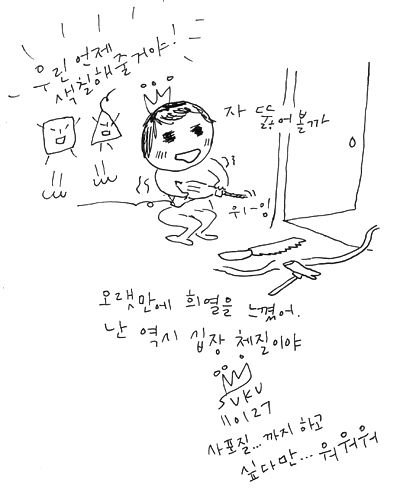 우린 언제
색칠해줄거야!
자 또
뚫어볼까
위-잉
오랫만에 희열을 느꼈어.
난 역시 십장 체질이야
SUKU
110127
사포질...까지 하고
싶다만... 워워워